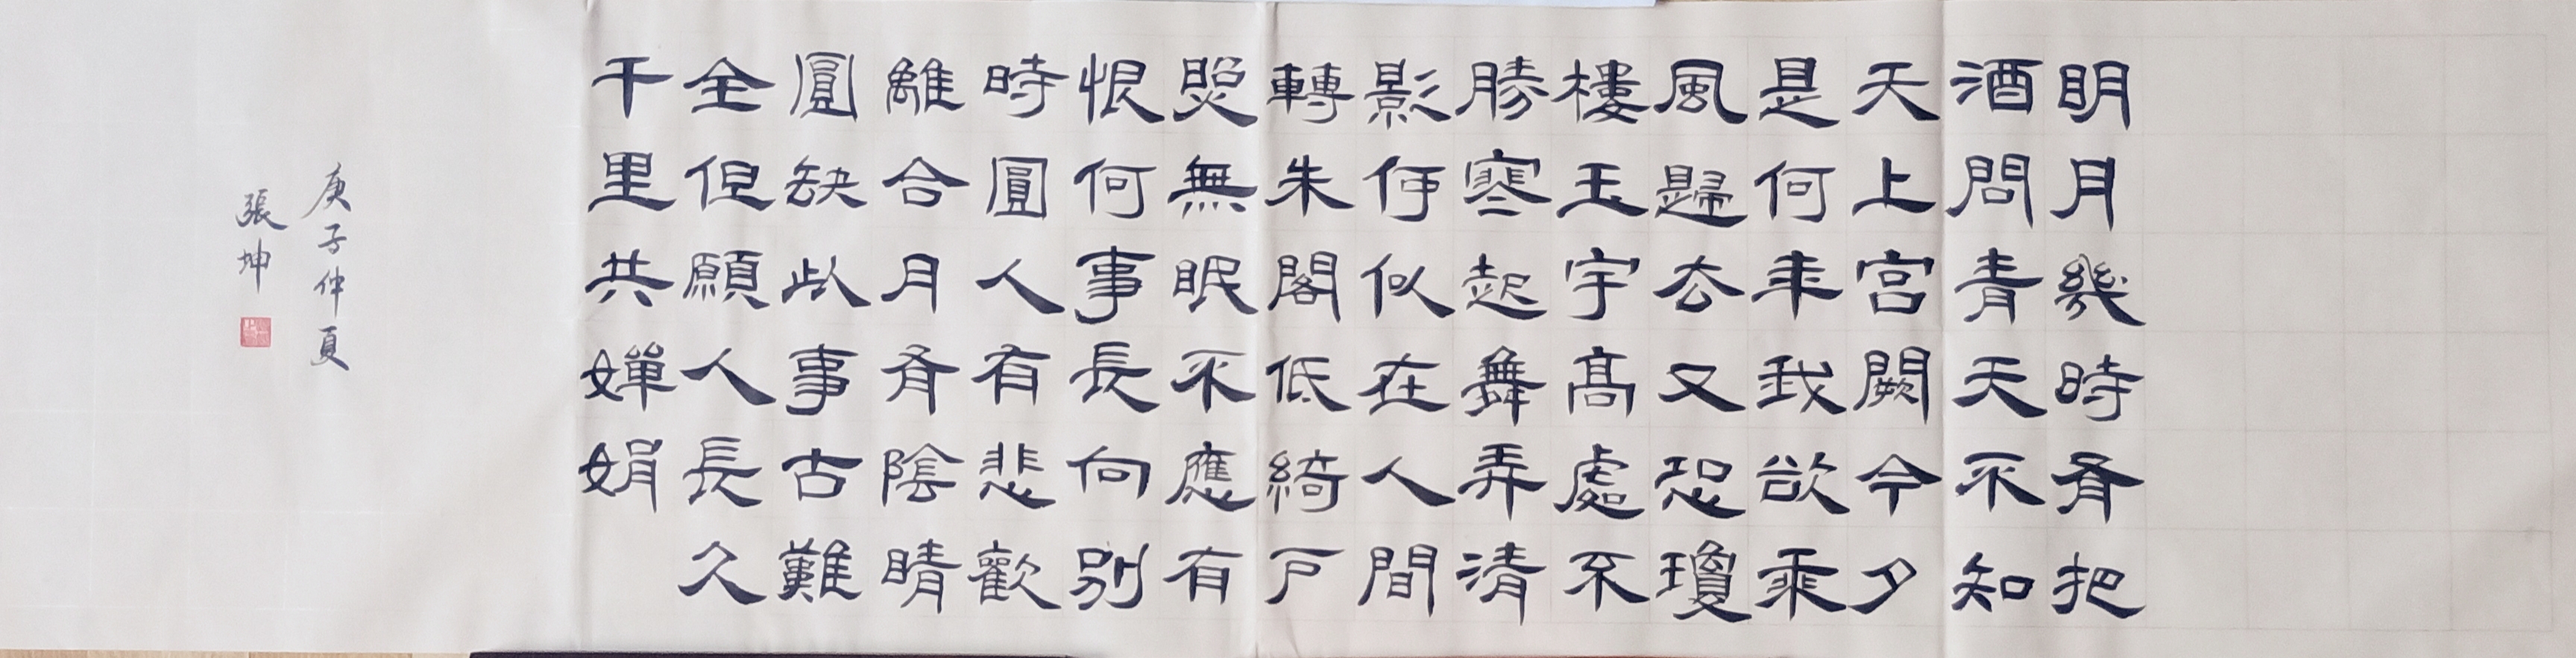 眀月幾時有把
酒問青天不知
天上宮闕今夕
是何年我欲乘
風歸去又恐瓊
樓玉宇髙處不
勝寒起舞弄清
影何似在人間
轉朱閣低綺戶
照無眠不應有
恨何事長向別
時圓人有悲歡
離合月有陰晴
圓缺此事古難
全但願人長久
千里共嬋娟
庚子仲夏
張坤